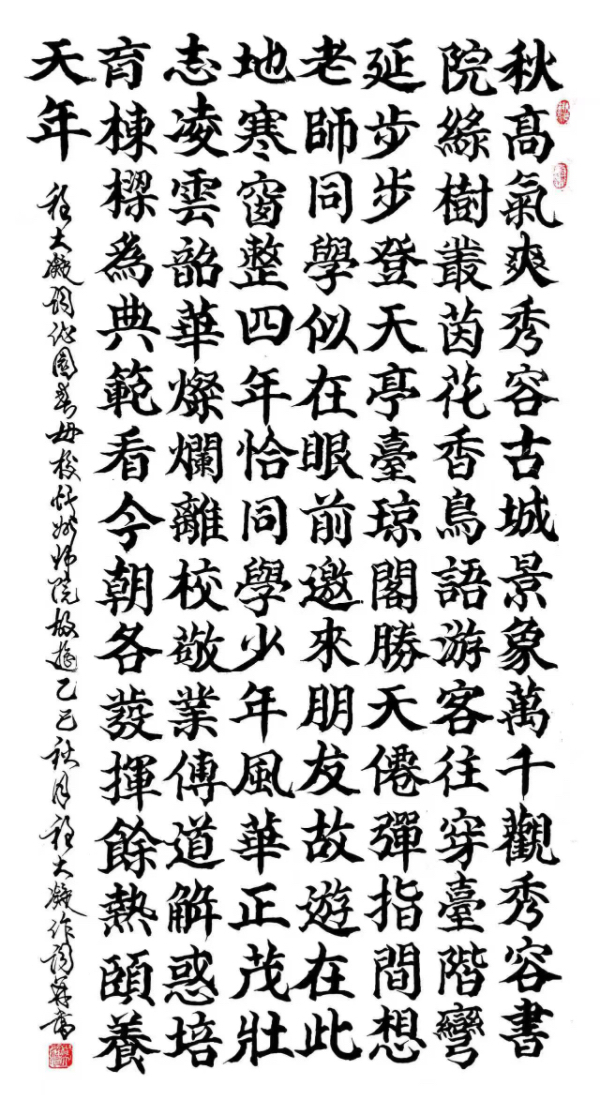 秋髙氣爽秀容古城景象萬千觀秀容書
院緣樹叢茵花香鳥語游客往穿臺階彎
延步步登天亭臺琼閣勝天僊彈指間想
老師同學似在眼前邀來朋友故遊在此
地寒窗整四年恰同學少年風華正茂壯
志凌雲韶華燦爛離校敬業傳道解惑培
育棟樑為典範看今朝各發揮餘熱頤養
天年
程大凝詞沁園春母校忻州師院故遊乙巳秋月程大凝作詞并書